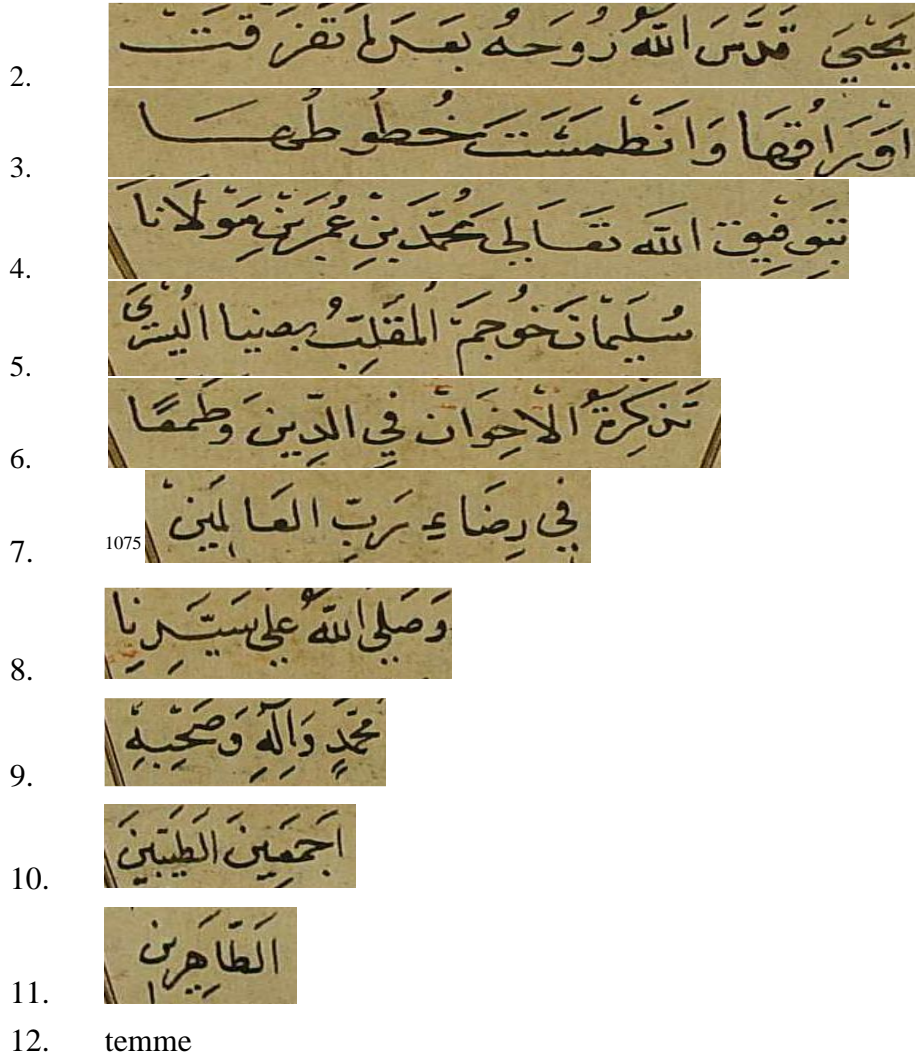 2. يَحْيَى قَدَّسَ اللّٰهُ رُوحَهُ بَعْدَ مَا تَفَرَّقَتْ
3. اَوْرَاقُهَا وَانْطَمَسَتْ خُطُوطُهَا
4. بِتَوْفِيقِ اللّٰهِ تَعَالٰى مُحَمَّدْ بِنْ عُمَرْ بِنْ مَوْلَانَا
5. سُلَيْمَانَ خُوجَمْ الْمُقَلِّبُ اليُسْرَى
6. تَذْكِرَةُ الْاِخْوَانْ فِي الدِّينَ وَطَمَعًا
7. 1075 فِي رِضَاءِ رَبِّ الْعَالَمِينْ
8. وَصَلَّى اللّٰهُ عَلَى سَيِّدِنَا
9. مُحَمَّدٍ وَاٰلِهِ وَصَحْبِهِ
10. اَجْمَعِينَ الطَّيِّبِينَ
11. الطَّاهِرِين
12. temme